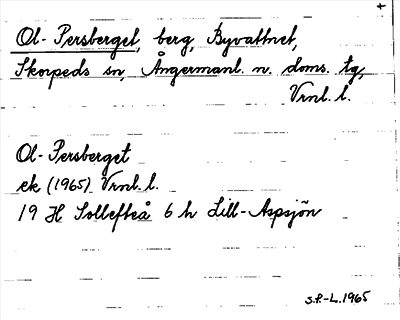 +
Ol-Persberget, berg, Byvattnet,
Skorpeds sn, Ångermanl. n. doms. tg,
Vrnl. l.
Ol-Persberget
ek (1965) Vrnl. l.
19 H Sollefteå 6 h Lill-Aspsjön
S.P.-L. 1965